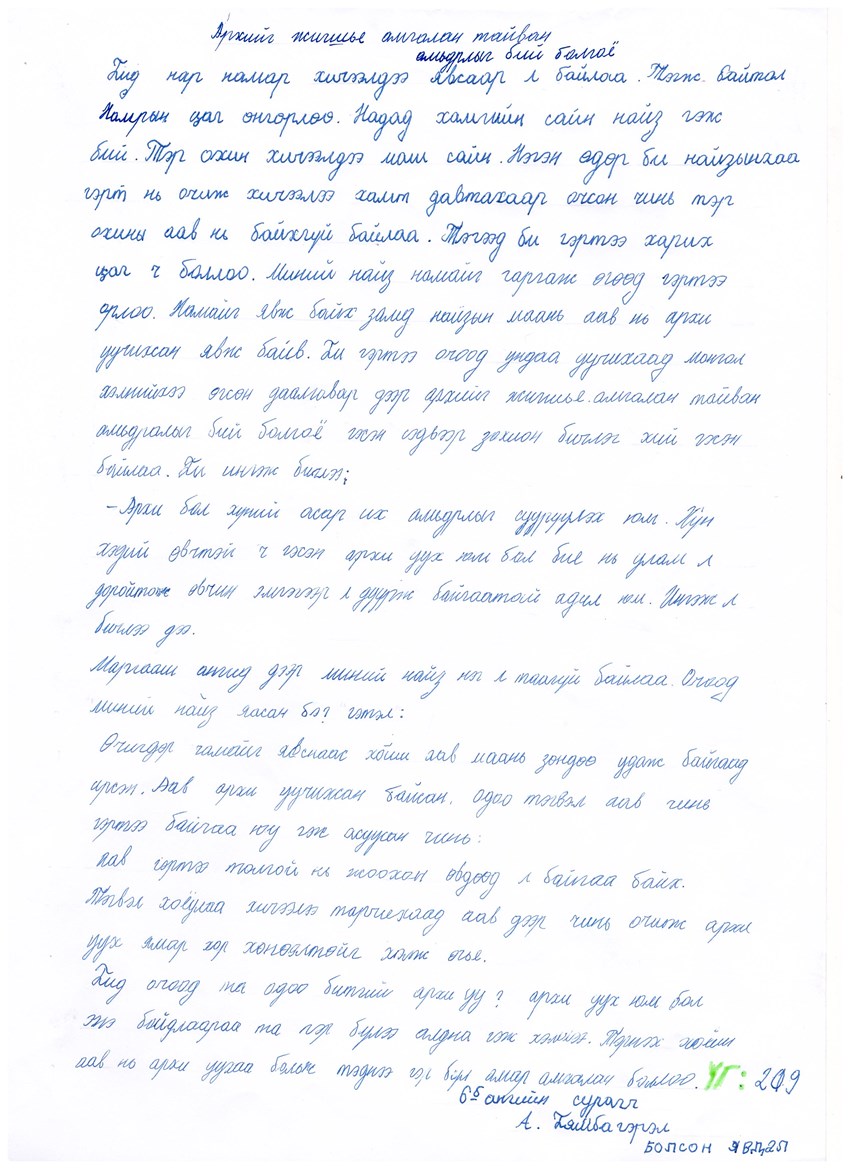 Архийг жигшье амгалан тайван
амьдрлыг бий болгоё
Бид нар намар хичээлдээ явсаар л байлаа. Тэгж байтал
Намрын цаг өнгөрлөө. Надад хамгийн сайн найз гэж
бий. Тэр охин хичээлдээ маш сайн. Нэгэн өдөр би найзынхаа
гэрт нь очиж хичээлээ хамт давтахаар очсон чинь тэр
охины аав нь байхгүй байлаа. Тэгээд би гэртээ харих
цаг ч боллоо. Миний найз намайг гаргаж өгөөд гэртээ
орлоо. Намайг явж байх замд найзын маань аав нь архи
уучихсан явж байв. Би гэртээ очоод ундаа уучихаад монгол
хэлнийхээ өгсөн даалгавар дээр архийг жигшье. амгалан тайван
амьдралыг бий болгоё гэсэн сэдвээр зохион бичлэг хий гэсэн
байлаа. Би ингэж бичлээ;
-Архи бол хүний асар их амьдрлыг сүйрүүлэх юм. Хүн
хэдий өвчтэй ч гэсэн архи уух юм бол бие нь улам л
доройтож өвчин эмгэгээр л дүүрэж байгаатай адил юм. Ингэж л
бичлээ дээ.
Маргааш ангид дээр миний найз нэг л таагүй байлаа. Очоод
миний найз яасан бэ? гэтэл:
Өчигдөр чамайг явснаас хойш аав маань зөндөө удаж байгаад
ирсэн. Аав архи уучихсан байсан. одоо тэгвэл аав чинь
гэртээ байгаа юу гэж асуусан чинь:
Аав гэртээ толгой нь жоохон өвдөөд л байгаа байх.
Тэгвэл хоёулаа хичээлээ тарчихаад аав дээр чинь очиж архи
уух ямар хор хөнөөлтэйг хэлж өгье.
Бид очоод та одоо битгий архи уу? архи уух юм бол
энэ байдлаараа та гэр бүлээ алдна гэж хэлчээ. Тэрнээс хойш
аав нь архи уухаа больж тэднээ гэр бүл амар амгалан боллоо. ҮГ: 209
6б ангийн сурагч
А. Бямбагэрэл
БОЛСОН